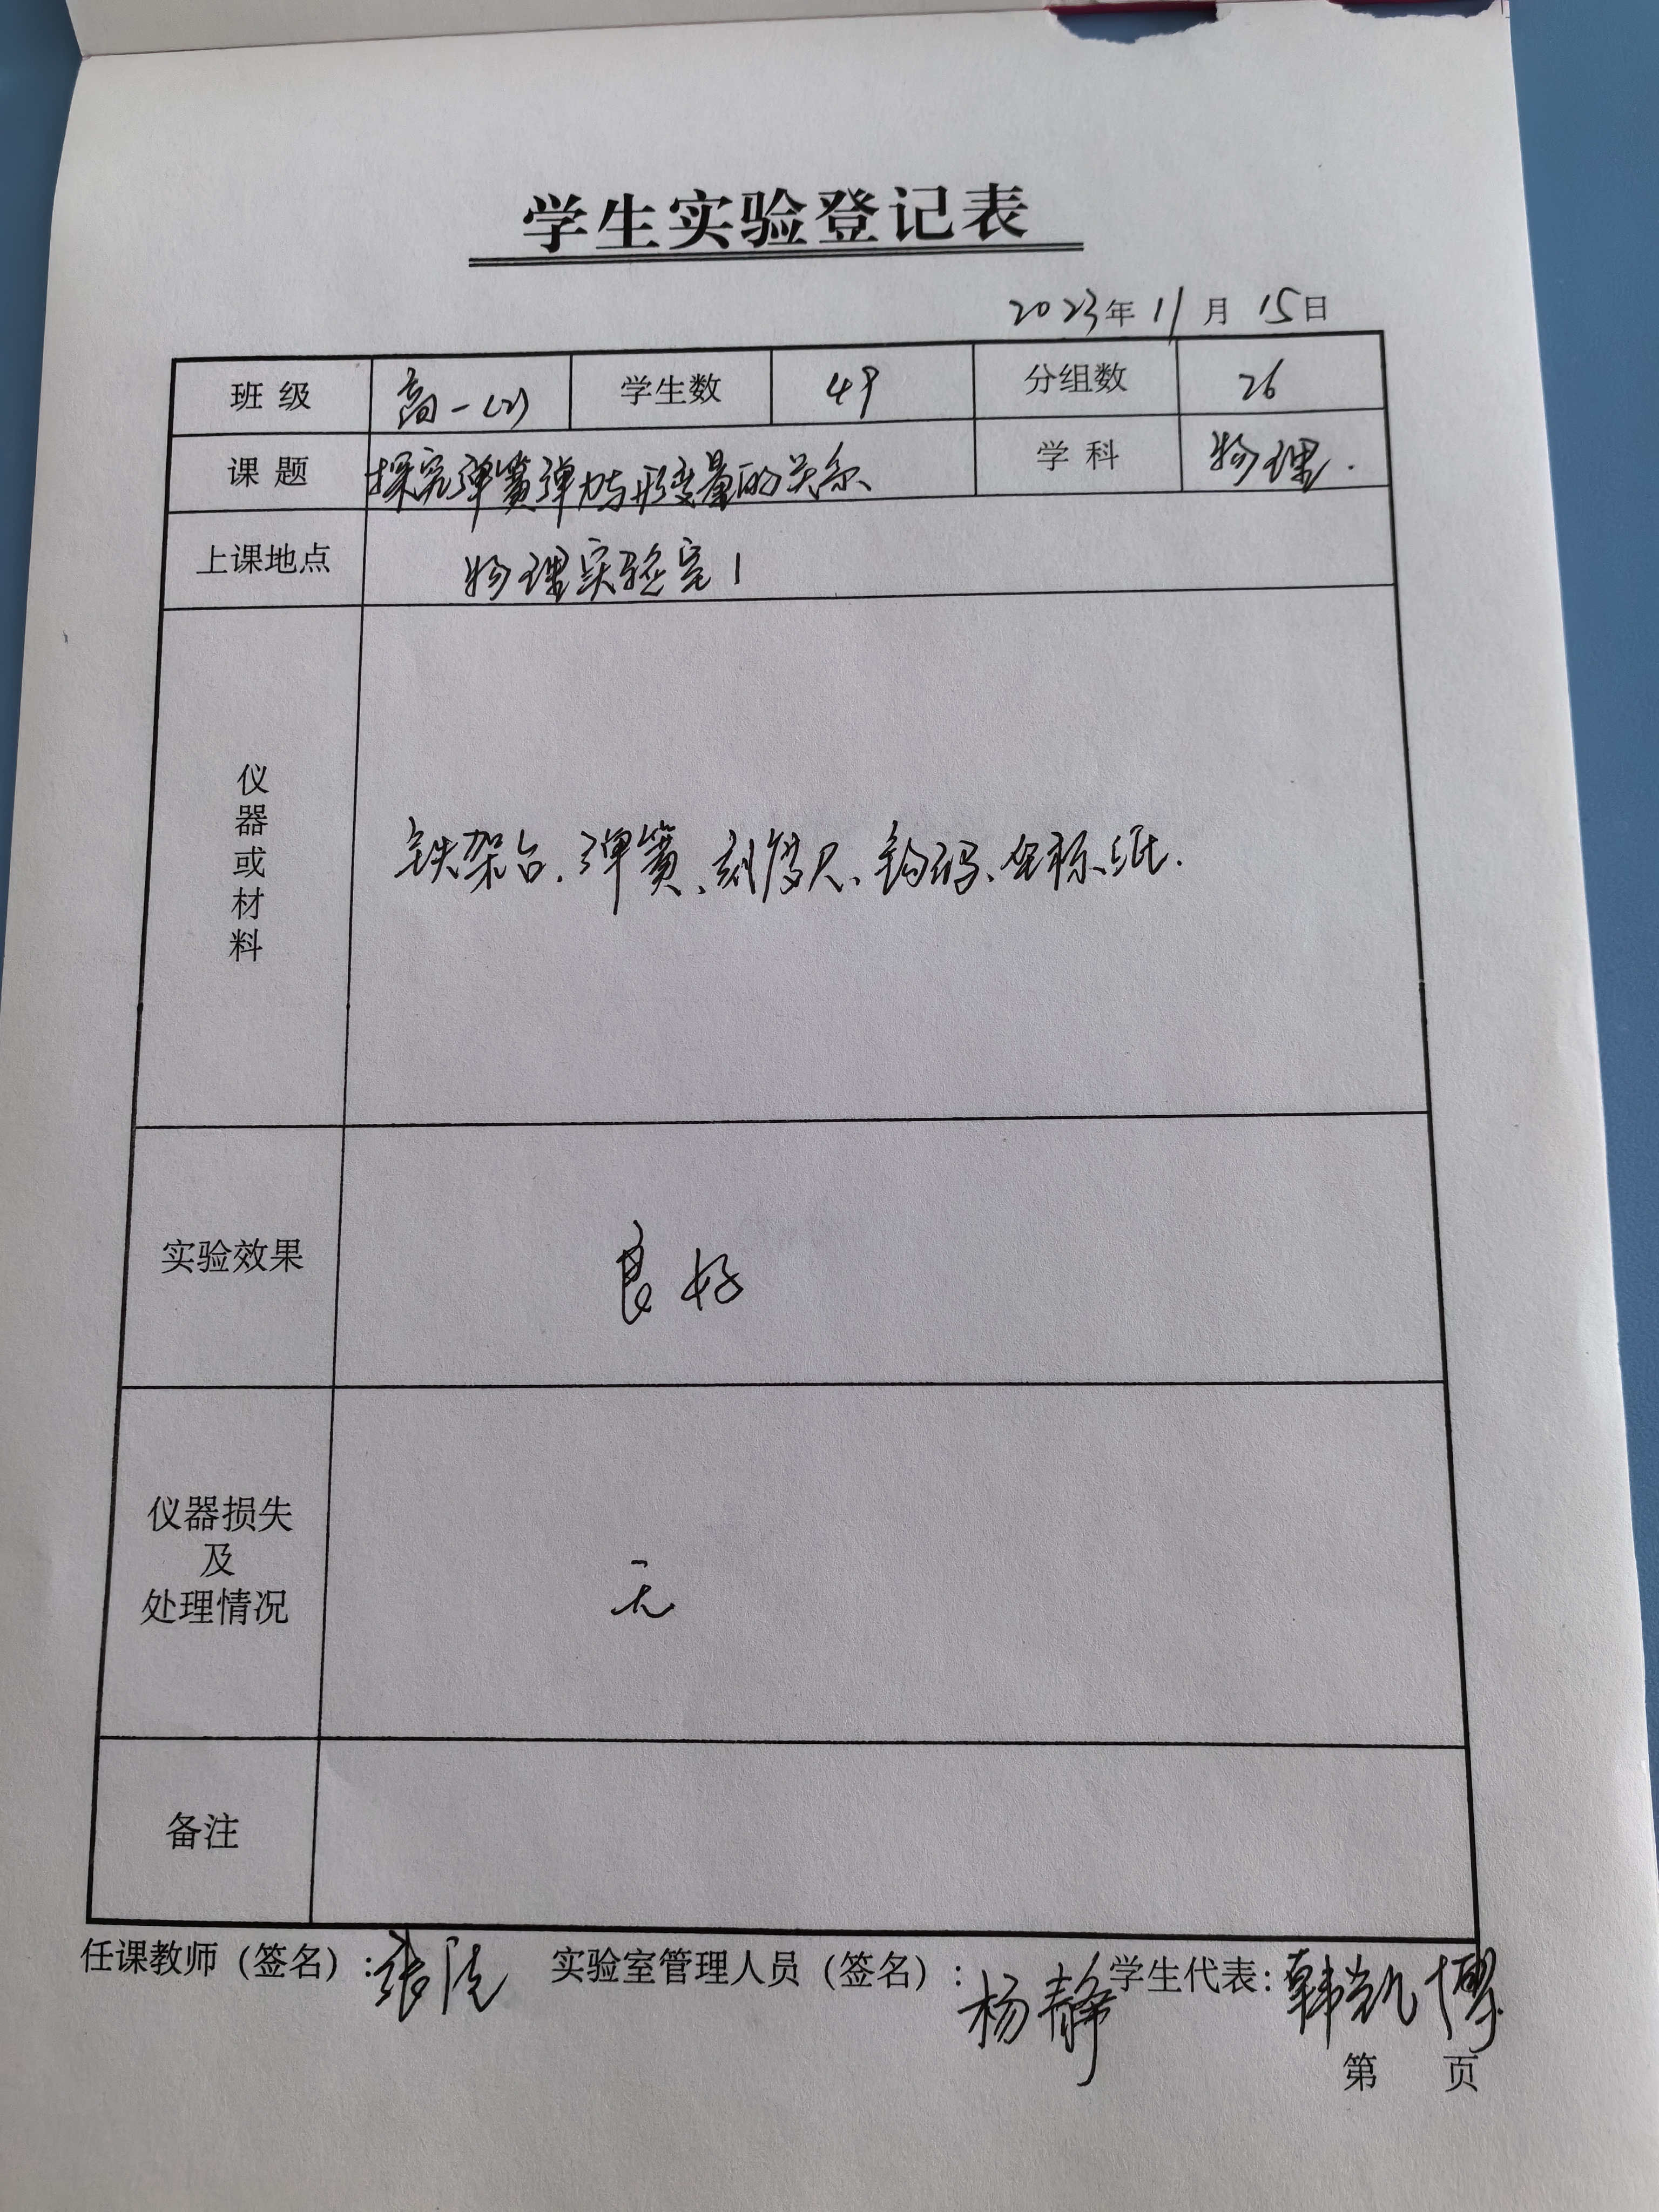 学生实验登记表
2023年11月15日
班级 高一(2) 学生数 49 分组数 26
课题 探究弹簧弹力与形变量的关系 学科 物理.
上课地点 物理实验室1
仪器或材料 铁架台、弹簧、刻度尺、钩码、坐标纸.
实验效果 良好
仪器损失
及
处理情况 无
备注
任课教师（签名）：张 实验室管理人员（签名）：杨静 学生代表：韩凯博
第 页